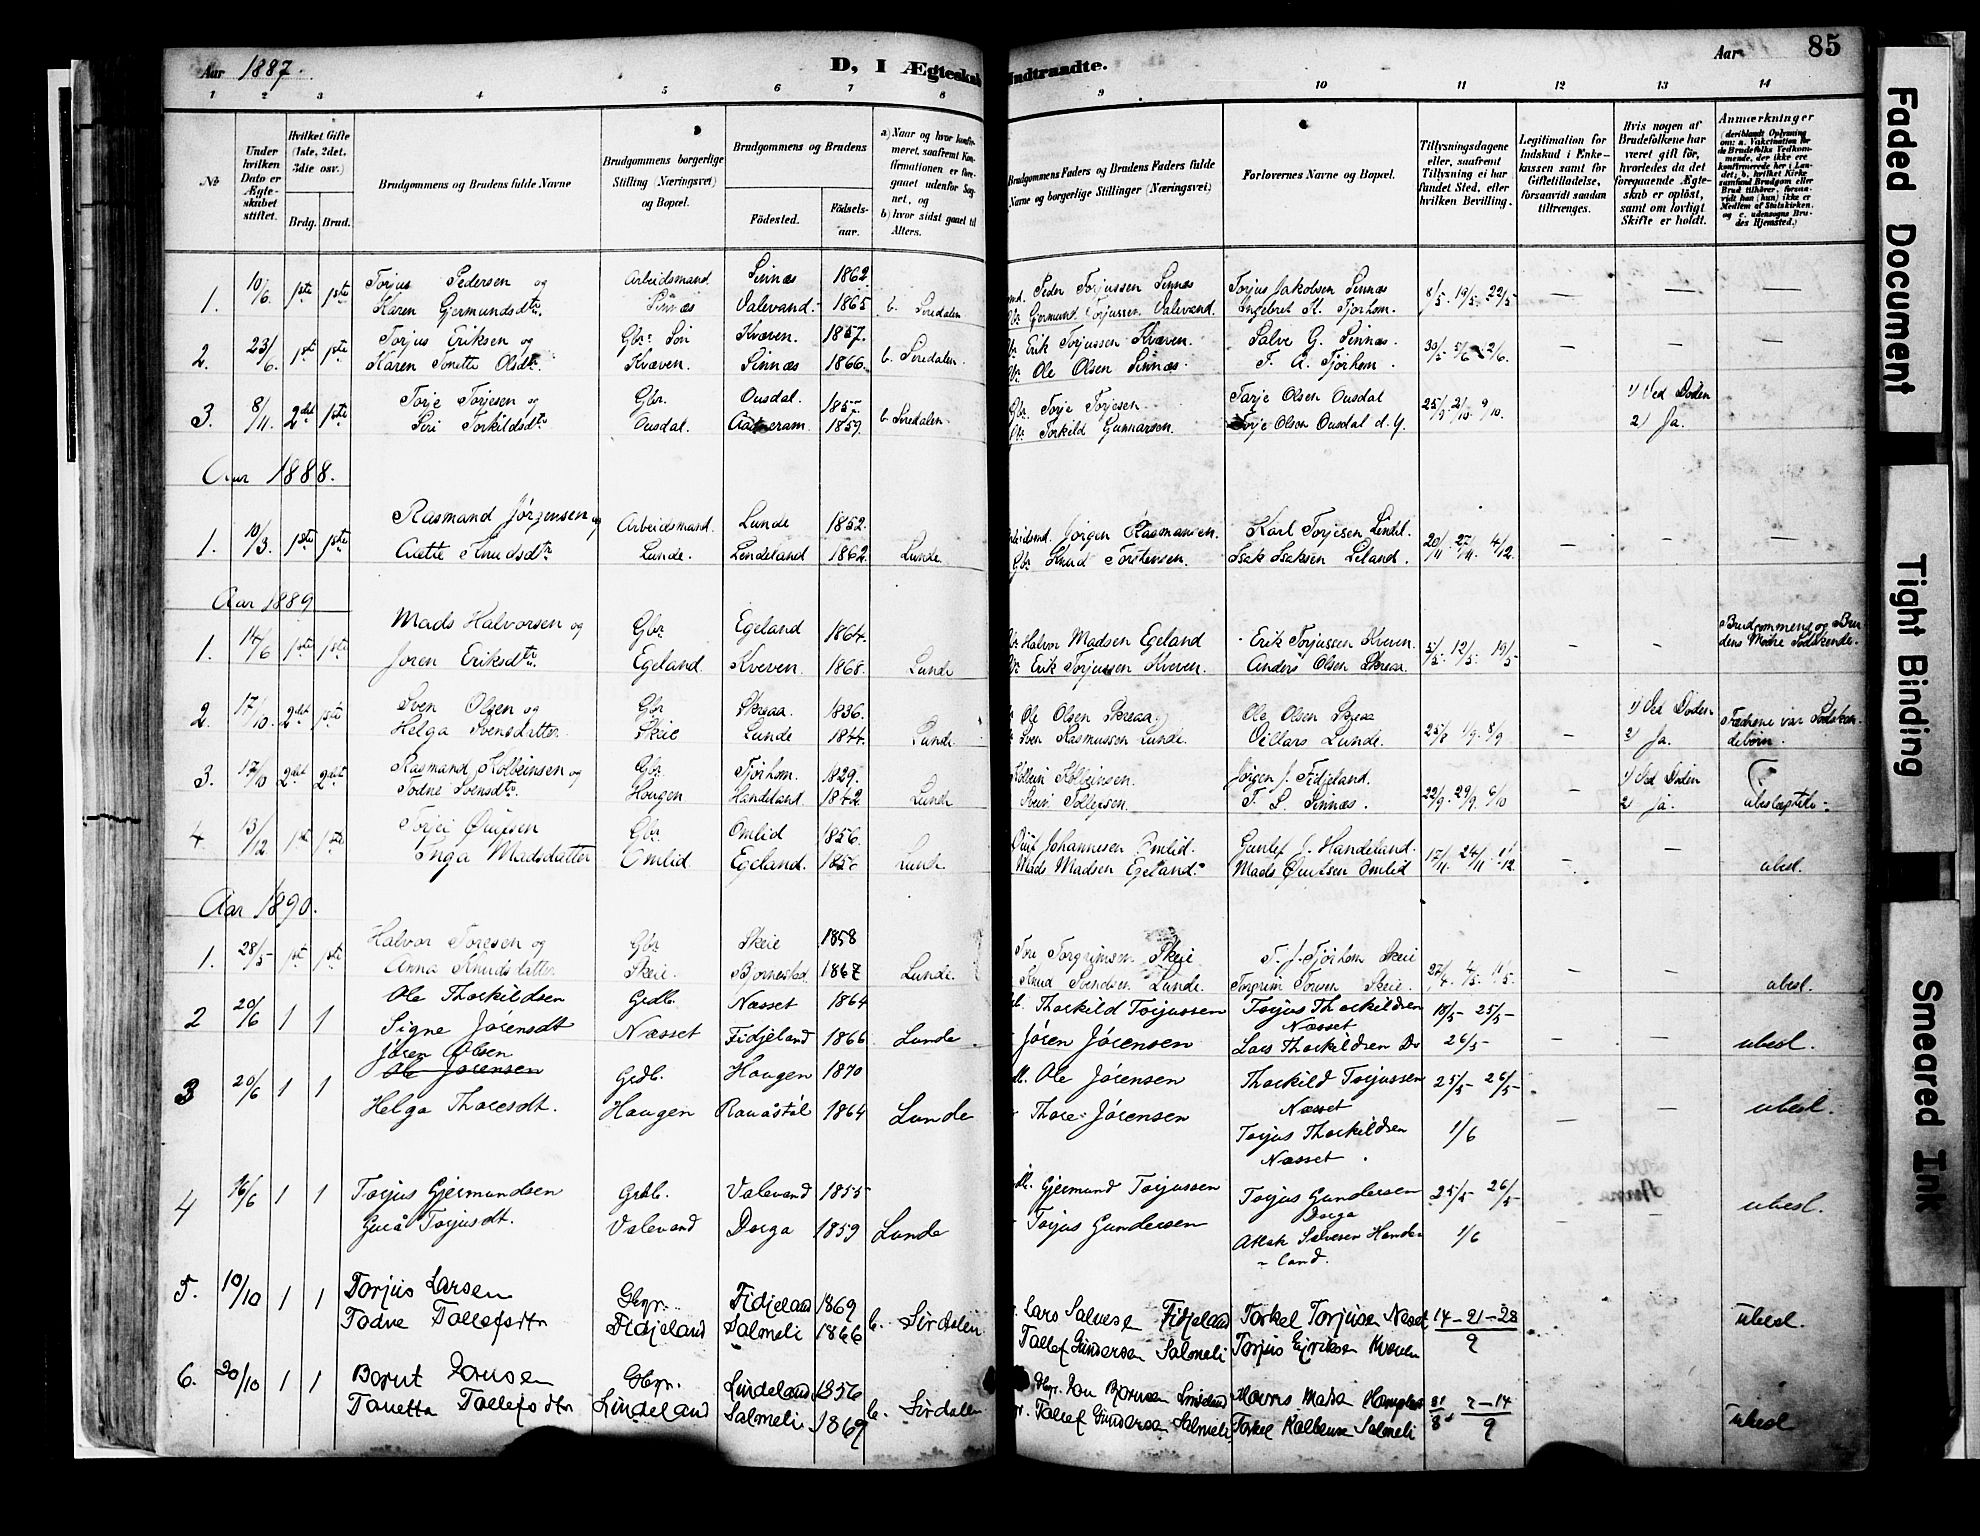 Aar 1887.
D, I Ægteskab Indtraadte.
Aar
85
1 2 3 4 5 6 7 8 9 10 11 12 13 14
No.
Under hvilken Dato er Ægteskabet stiftet.
Hvilket Gifte (1ste, 2det, 3die osv.)
Brdg. Brud.
Brudgommens og Brudens fulde Navne
Brudgommens borgerlige Stilling (Næringsvei) og Bopæl.
Brudgommens og Brudens
Fødested.
Fødselsaar.
a) Naar og hvor konfirmeret, saafremt Konfirmationen er foregaaet udenfor Sognet, og b) hvor sidst gaaet til Alters.
Brudgommens Faders og Brudens Faders fulde Navne og borgerlige Stillinger (Næringsvei)
Forlovernes Navne og Bopæl.
Tillysningsdagene eller, saafremt Tillysning ei har fundet Sted, efter hvilken Bevilling.
Legitimation for Indskud i Enkekassen samt for Giftetilladelse, forsaavidt saadan tiltrænges.
Hvis nogen af Brudefolkene har været gift før, hvorledes da det foregaaende Ægteskab er opløst, samt om lovligt Skifte er holdt.
Anmærkninger
1. 10/6. 1ste 1ste Torjus Pedersen og Arbeidsmand Sinnæs 1862 Peder Torjussen Sinnæs Torjus Jakobsen Sinnæs 8/5. 19/5. 22/5 — — —
Karen Gjermundsdtr. Sinnæs Valevand. 1865 b. Siredalen Gjermund Torjussen Valevand. Ingebret St. Tjorhom.
2. 23/6. 1ste 1ste Torjus Eriksen og Gbr. Søn Kvæven. 1857. Erik Torjussen Kvæven. Salve G. Sinnæs. 30/5 5/6 12/6. — — —
Karen Tonette Olsdtr. Kvæven. Sinnæs 1866. b. Siredalen Ole Olsen Sinnæs. T. A. Tjørhom.
3. 8/11. 2det 1ste Torje Torjesen og Gbr. Ousdal. 1857 Gbr. Torje Torjesen. Tarje Olsen Ousdal 25/9 2/10 9/10. 1) Ved Døden
Siri Torkildsdtr Ousdal. 1859. b Siredalen Gbr. Torkild Gunnarsen. Torje Olsen Ousdal d. y. 2) Ja.
Aar 1888.
1. 10/3. 1ste 1ste Rasmand Jørgensen og Arbeidsmand. Lunde 1852. Jørgen Rasmansen. Karl Torjesen Lindel. 20/11. 27/11. 4/12. — — —
Aette Knudsdtr Lunde. Lendeland 1862. Lunde. Gbr. Knud Torstensen. Isak Isaksen Liland.
Aar 1889
1. 14/6 1ste 1ste Mads Halvorsen og Gbr Egeland 1864. Halvor Madsen Egeland Erik Torjussen Kveven. 5/5. 12/5. 19/5 — — Brudgommens og Brudens Mødre Sødskende.
Joren Eriksdtr. Egeland. Kveven. 1868. Lunde Erik Torjussen Kveven. Anders Olsen Skreaa
2. 17/10. 2det 1ste Sven Olsen og Gbr Skreaa. 1836. Ole Olsen Skreaa. Ole Olsen Skreaa 25/8 1/9. 8/9 — 1) Ved Døden Fædrene var Sødskendebørn.
Helga Svensdatter Skeie Lunde 1844. Lunde Sven Rasmussen Lunde. Villars Lunde. 2) Ja.
3. 17/10 2det 2det Rasmand Kolbeinsen og Gbr. Tjørhom. 1829. Kolbein Kolbeinsen. Jørgen J. Fidjeland. 22/9. 29/9 6/10 1) Ved Døden
Todne Svensdtr. Hougen Handeland. 1842 Lunde Sven Tollefsen. T. S. Sinnæs. 2) Ja. ubeslægtede.
4 13/12 1ste 1ste Gbr. Omlid 1856. Johannesen Omlid. Gunlef J. Handeland. 17/11. 24/11. 1/12 — —
Inga Madsdatter Omlid Egeland. Lunde Mads Madsen Egeland. Mads Omlid ubesl.
Aar 1890.
1. 28/5 1ste 1ste Halvor Toresen og Gbr Skeie 1858 Tore Torgrimsen Skeie T. J. Tjørhom Skeie 27/4. 4/5. 11/5. — —
Anna Knudsdatter Skeie. Bornestad 1867 Lunde. Knud Svendsen Lunde. Torgrim Toresen Skeie. ubesl.
2 20/6 1 1 Ole Thorkildsen Grdb. Næsset 1864 Thorkild Torjussen Torjus Thorkildsen Næsset 18/5 25/5 — —
Signe Jørensdt Næsset Fidjeland 1866 Lunde. Jøren Jørensen Lars Thorkildsen Do 26/5 ubesl.
3 20/6 1 1 Jøren Olsen Ole Jørensen Grdb. Hougen 1870 Ole Jørensen Thorkild Torjussen Næsset 25/5 26/5 — —
Helga Thoresdt. Hougen Rauåstøl 1864 Lunde Thore Jørensen Torjus Thorkildsen Næsset. 1/6 ubesl.
4 26/6 1 1 Torjus Gjermundsen Grdb. Valevand 1855 Gjermund Torjussen Torjus Gundersen Dorga 25/5 26/5 — —
Guró Torjusdt. Valevand Dorga 1859 Lunde Torjus Gundersen Atlak Salvesen Handeland. 1/6 ubesl.
5. 10/10 1 1 Torjus Larsen Gbr. Fidjeland 1869 Lars Salvese Fidjeland Torkel Torjusen Neset 14-21-28/9 ubesl.
Todne Tollefsdtr Fidjeland Salmeli 1866 b. Sirdalen Tallef Gundersen Salmeli Torjus Ejriksen Kvæven
6. 20/10 1 1 Gbr. Lindeland 1856 Lindeland 31/8 7-14/9
Tonetta Tollefsdtr Lindeland Salmeli 1869 b. Sirdalen Tallef Gundersen Salmeli. Torkel Salmeli ubesl
Faded Document
Tight Binding
Smeared Ink